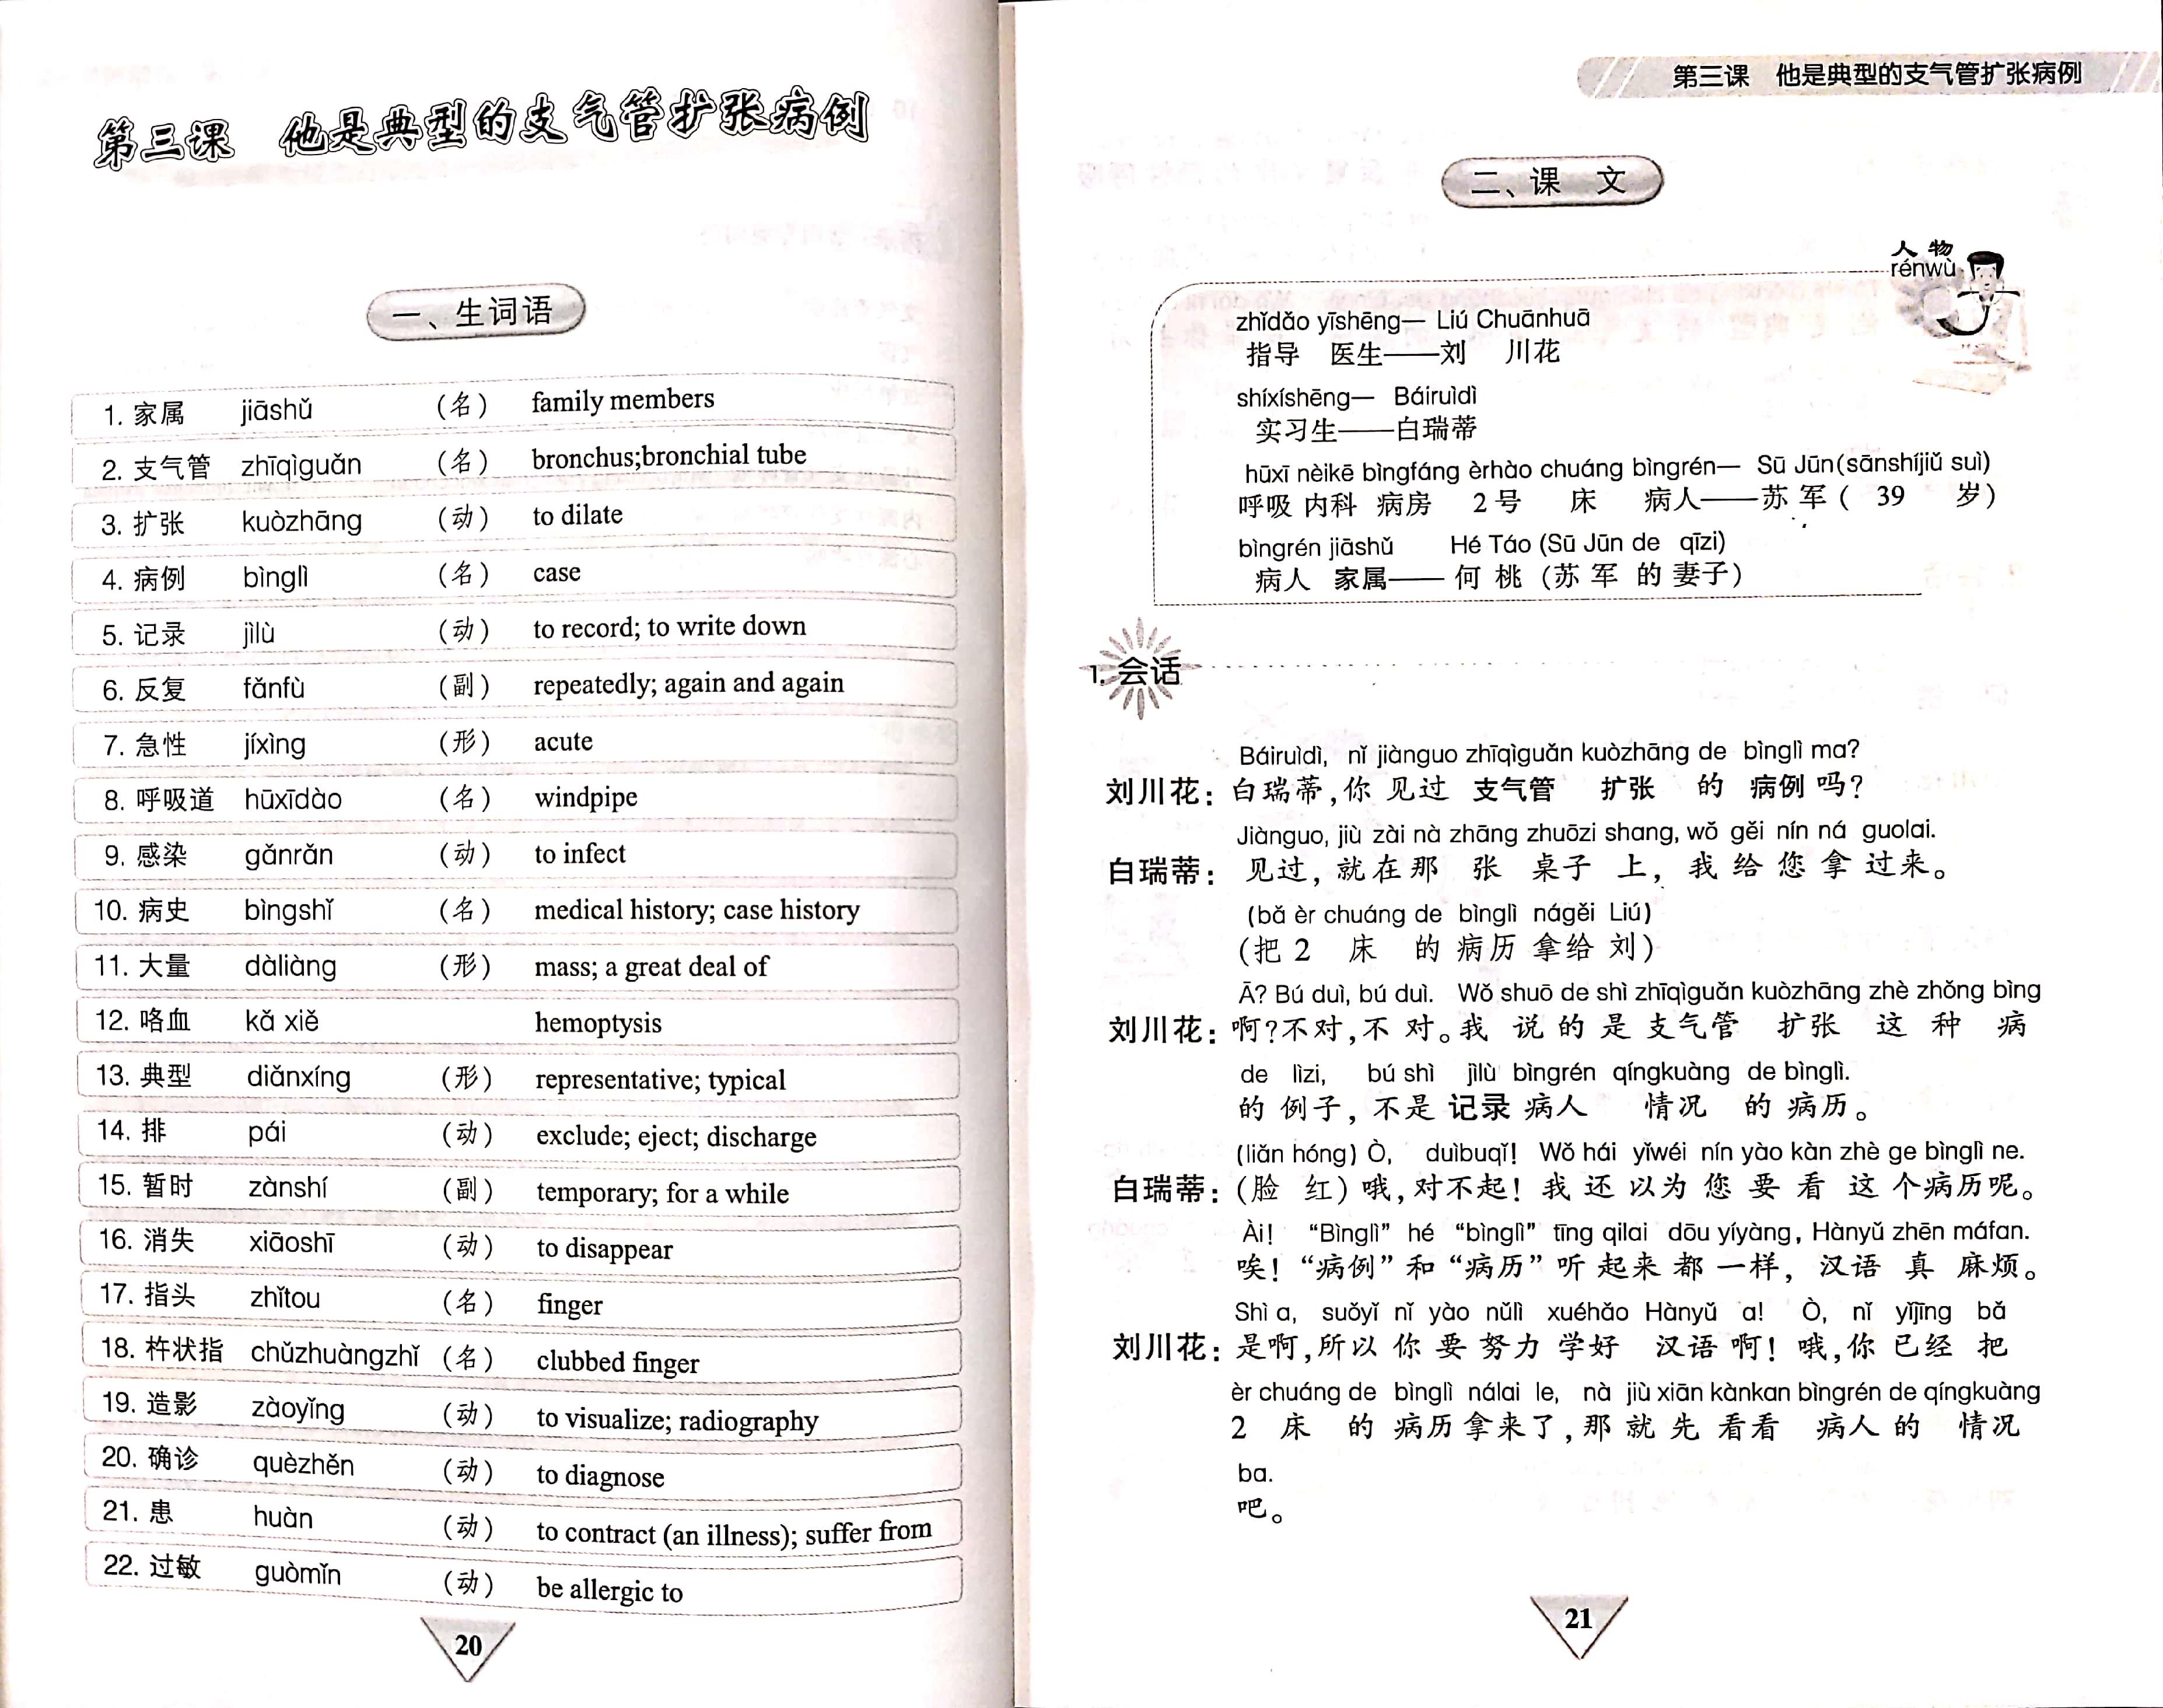 第三课 他是典型的支气管扩张病例
一、生词语
1. 家属 jiāshǔ (名) family members
2. 支气管 zhīqìguǎn (名) bronchus;bronchial tube
3. 扩张 kuòzhāng (动) to dilate
4. 病例 bìnglì (名) case
5. 记录 jìlù (动) to record; to write down
6. 反复 fǎnfù (副) repeatedly; again and again
7. 急性 jíxìng (形) acute
8. 呼吸道 hūxīdào (名) windpipe
9. 感染 gǎnrǎn (动) to infect
10. 病史 bìngshǐ (名) medical history; case history
11. 大量 dàliàng (形) mass; a great deal of
12. 咯血 kǎ xiě hemoptysis
13. 典型 diǎnxíng (形) representative; typical
14. 排 pái (动) exclude; eject; discharge
15. 暂时 zànshí (副) temporary; for a while
16. 消失 xiāoshī (动) to disappear
17. 指头 zhǐtou (名) finger
18. 杵状指 chǔzhuàngzhǐ (名) clubbed finger
19. 造影 zàoyǐng (动) to visualize; radiography
20. 确诊 quèzhěn (动) to diagnose
21. 患 huàn (动) to contract (an illness); suffer from
22. 过敏 guòmǐn (动) be allergic to
20
第三课 他是典型的支气管扩张病例
二、课 文
人 物
rénwù
zhǐdǎo yīshēng— Liú Chuānhuā
指导 医生——刘 川花
shíxíshēng— Báiruìdì
实习生——白瑞蒂
hūxī nèikē bìngfáng èrhào chuáng bìngrén— Sū Jūn(sānshíjiǔ suì)
呼吸 内科 病房 2号 床 病人——苏 军( 39 岁)
bìngrén jiāshǔ Hé Táo (Sū Jūn de qīzi)
病人 家属——何 桃 (苏 军 的 妻子)
1. 会话
Báiruìdì, nǐ jiànguo zhīqìguǎn kuòzhāng de bìnglì ma?
刘川花：白瑞蒂,你 见过 支气管 扩张 的 病例 吗?
Jiànguo, jiù zài nà zhāng zhuōzi shang, wǒ gěi nín ná guolai.
白瑞蒂： 见过, 就 在 那 张 桌子 上, 我 给 您 拿 过来。
(bǎ èr chuáng de bìnglì nágěi Liú)
(把 2 床 的 病历 拿给 刘)
Ā? Bú duì, bú duì. Wǒ shuō de shì zhīqìguǎn kuòzhāng zhè zhǒng bìng
刘川花：啊?不对,不 对。我 说 的 是 支气管 扩张 这 种 病
de lìzi, bú shì jìlù bìngrén qíngkuàng de bìnglì.
的 例子, 不是 记录 病人 情况 的 病历。
(liǎn hóng) Ò, duìbuqǐ! Wǒ hái yǐwéi nín yào kàn zhè ge bìnglì ne.
白瑞蒂：(脸 红) 哦,对不起! 我 还 以为 您 要 看 这 个 病历 呢。
Ài! “Bìnglì” hé “bìnglì” tīng qilai dōu yíyàng, Hànyǔ zhēn máfan.
唉! “病例” 和 “病历” 听 起来 都 一样, 汉语 真 麻烦。
Shì a, suǒyǐ nǐ yào nǔlì xuéhǎo Hànyǔ a! Ò, nǐ yǐjīng bǎ
刘川花：是啊,所以 你 要 努力 学好 汉语 啊! 哦,你 已经 把
èr chuáng de bìnglì nálai le, nà jiù xiān kànkan bìngrén de qíngkuàng
2 床 的 病历 拿来 了,那 就 先 看看 病人 的 情况
ba.
吧。
21